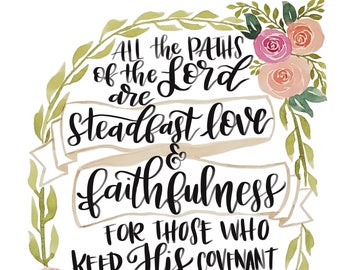 ALL the PATHS
of the Lord
are
steadfast love
&
faithfulness
FOR THOSE WHO
KEEP His COVENANT